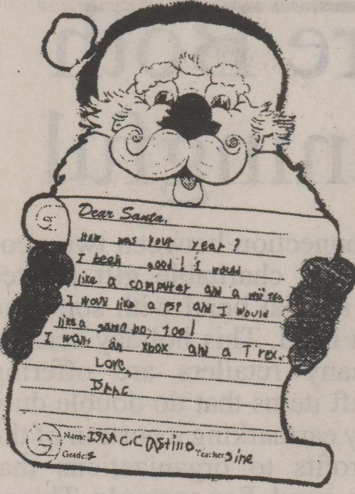 Dear Santa,
How was your year?
I beah good! I would
like a computer and a
I would like a PSP and I would
like a gameboy too!
I want an xbox and a T rex.
Love,
Isaac
Name: Isaac Castillo Teacher: Sine
Grade: